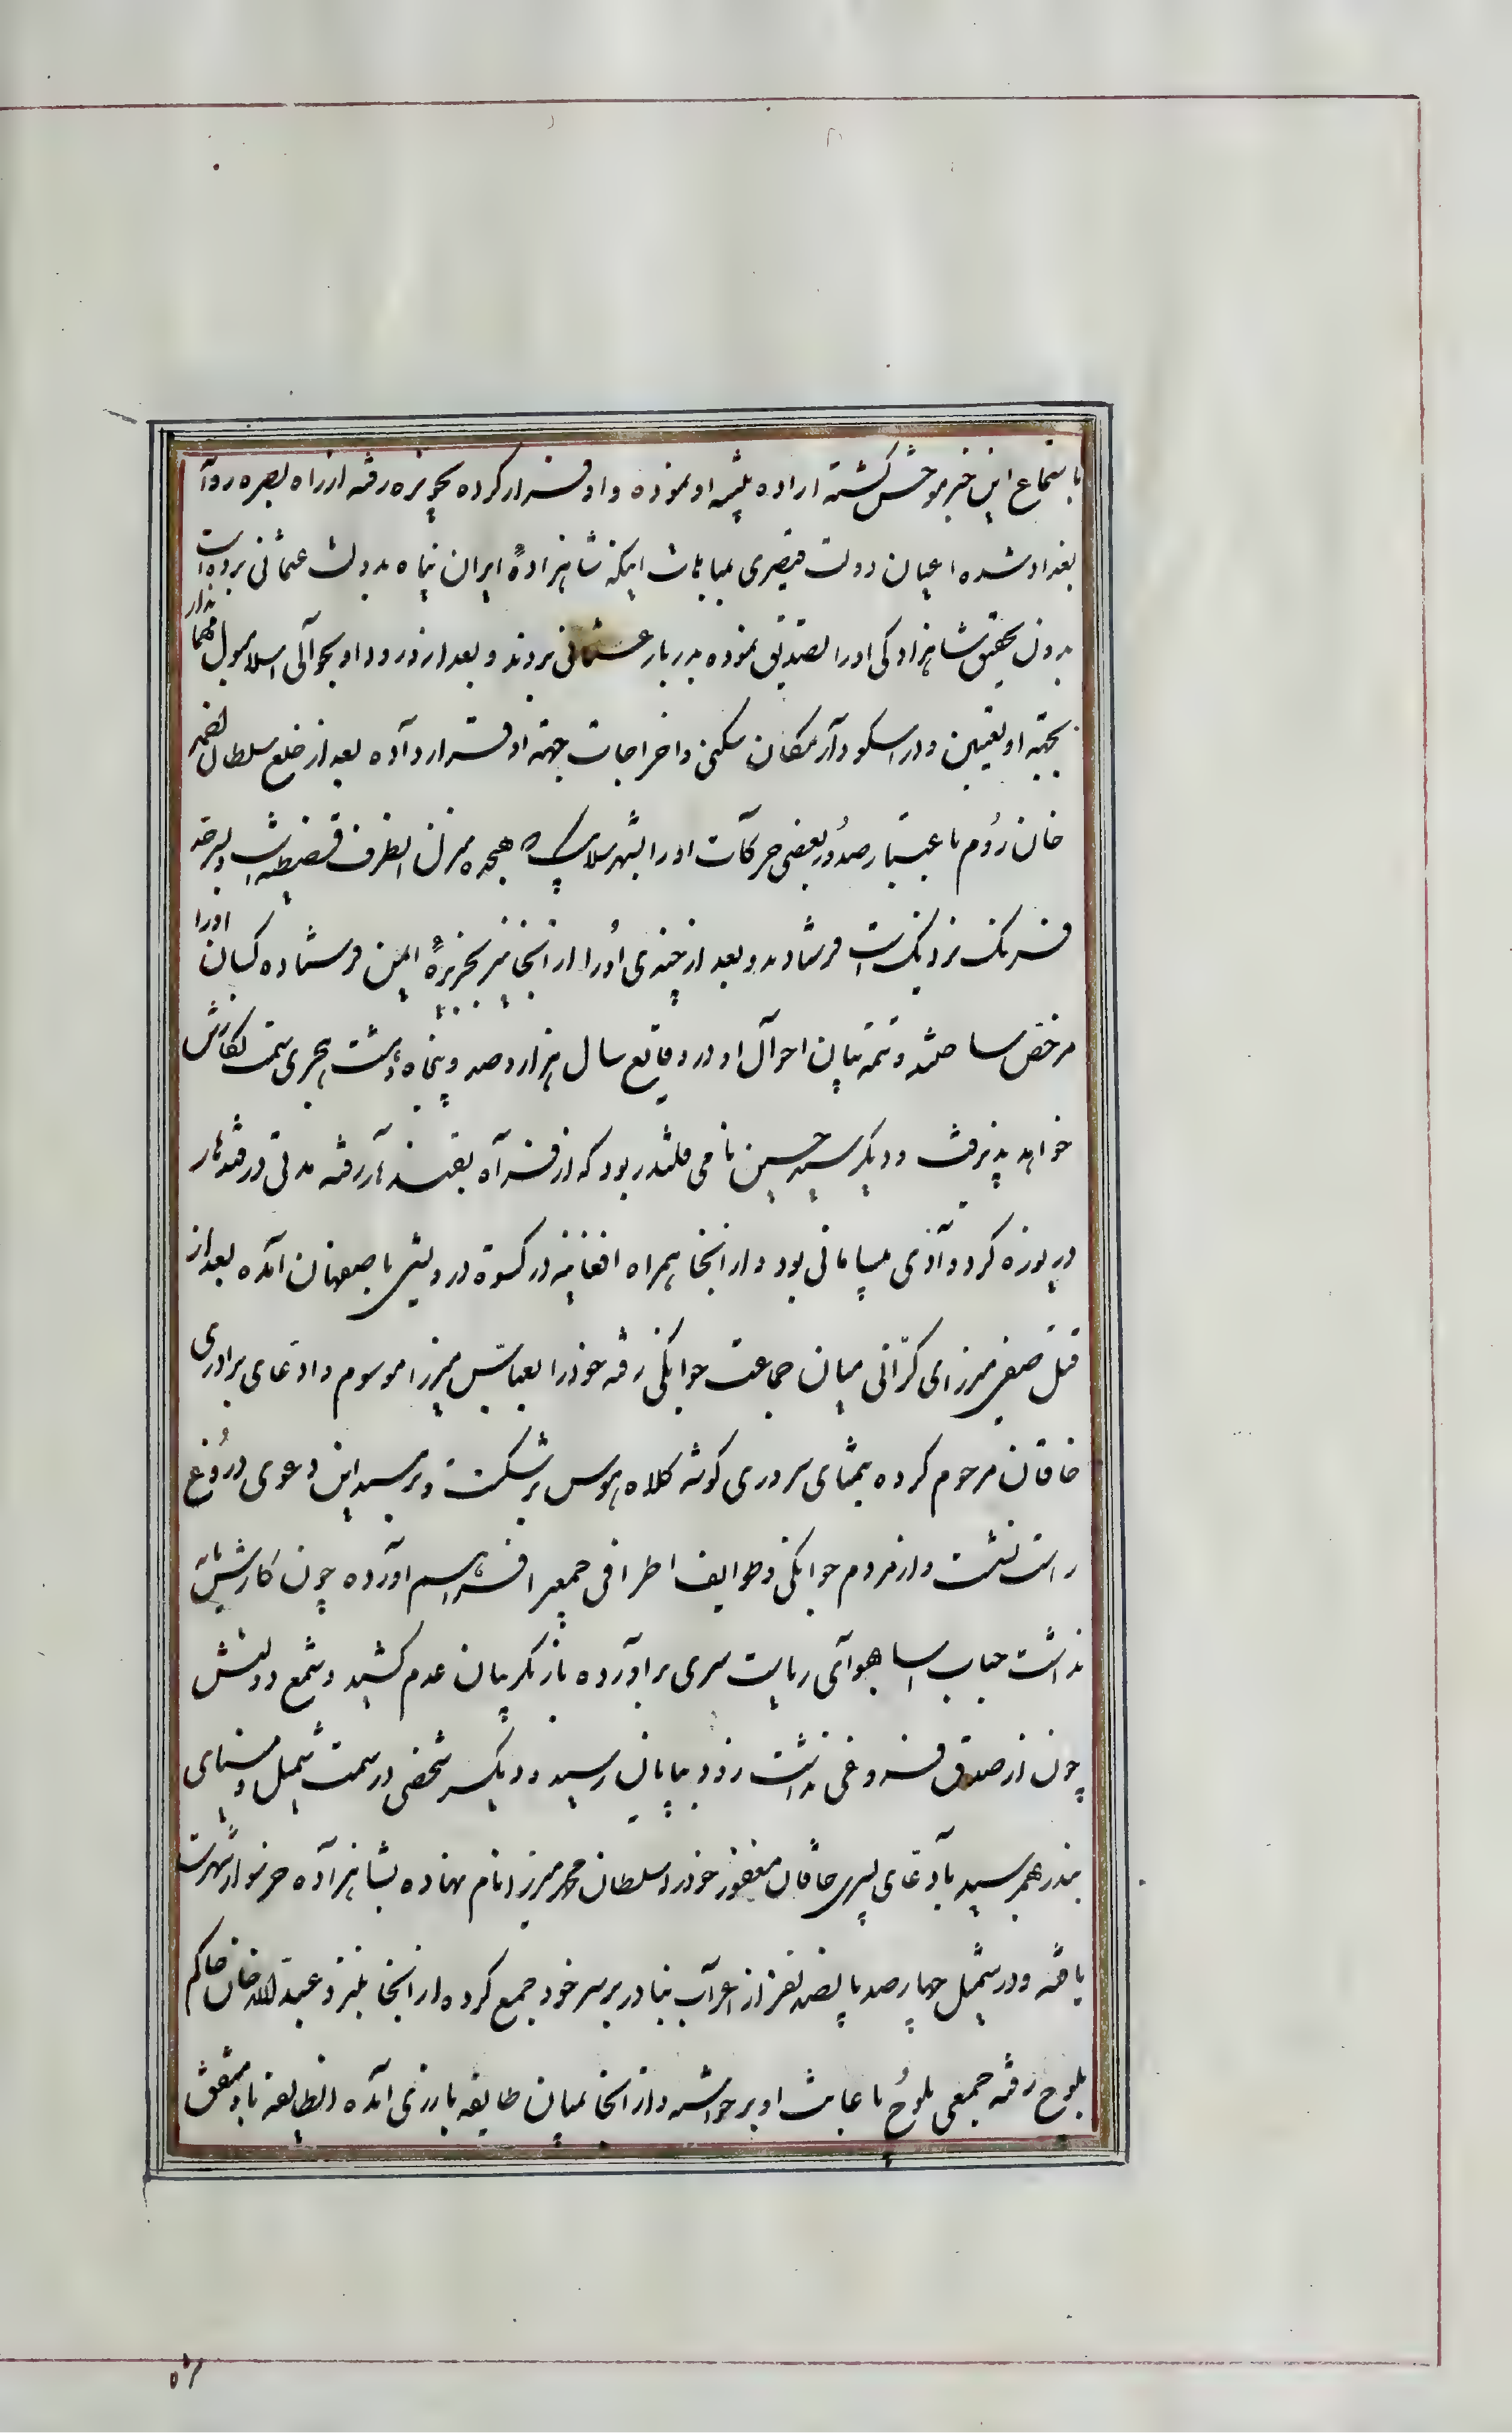 باستماع این خبر موحش گشته اراده تنبیه او نموده و او فرار کرده بحویزه رفته از راه بصره روآ
بغداد شده اعیان دولت قیصری بمباهات اینکه شاهزادهٔ ایران پناه بدولت عثمانی برده است
بدون تحقیق شاهزادگی او را تصدیق نموده بدربار عثمانی بردند و بعد از ورود او بحوالی اسلامبول مهماندار
بجهته او تعیین و در اسکودار مکان سکنی و اخراجات جهته او قرار داده بعد از خلع سلطان احمد
خان روم باعتبار صدور بعضی حرکات او را بشهر سلانیک که هجده منزل انطرف قسطنطنیه است و بسرحد
فرنک نزدیک است فرستادند و بعد از چندی او را از انجا نیز بجزیرهٔ لیمن فرستاده کسان او را
مرخص ساختند و تتمه بیان احوال او در وقایع سال هزار و صد و پنجاه و هشت هجری سمت نگارش
خواهد پذیرفت و دیگر سید حسین نامی قلندر بود که از فراه بقندهار رفته مدتی در قندهار
دریوزه کرد وادی بیسامانی بود و از انجا همراه افاغنه در کسوة درویشی باصفهان آمده بعد از
قتل صفی میرزای کرانی میان جماعت جوانکی رفته خود را بعباس میرزا موسوم و ادعای برادری
خاقان مرحوم کرده بتمنای سروری گوشه کلاه هوس برشکست و بر مسند این دعوی دروغ
راست نشست و از مردم جوانکی و طوایف اطرافی جمعی را فراهم آورده چون کارش مایه
نداشت حباب اسا بهوای ریاست سری برآورده باز بگریبان عدم کشید و شمع دولتش
چون از صدق فروغی نداشت زود بپایان رسید و دیگر شخصی در سمت شمیل و میناب
بندر بهم رسید بادعای پسری خاقان مغفور خود را سلطان محمد میرزا نام نهاده بشاهزاده خر سوار شهرت
یافته و در شمیل چهار صد پانصد نفر از اعراب بنادر بر سر خود جمع کرده از انجا بنزد عبدالله خان حاکم
بلوچ رفته جمعی بلوچ باعانت او برخواسته و از انجا بمیان طایفه بارزی آمده انطایفه با او متفق